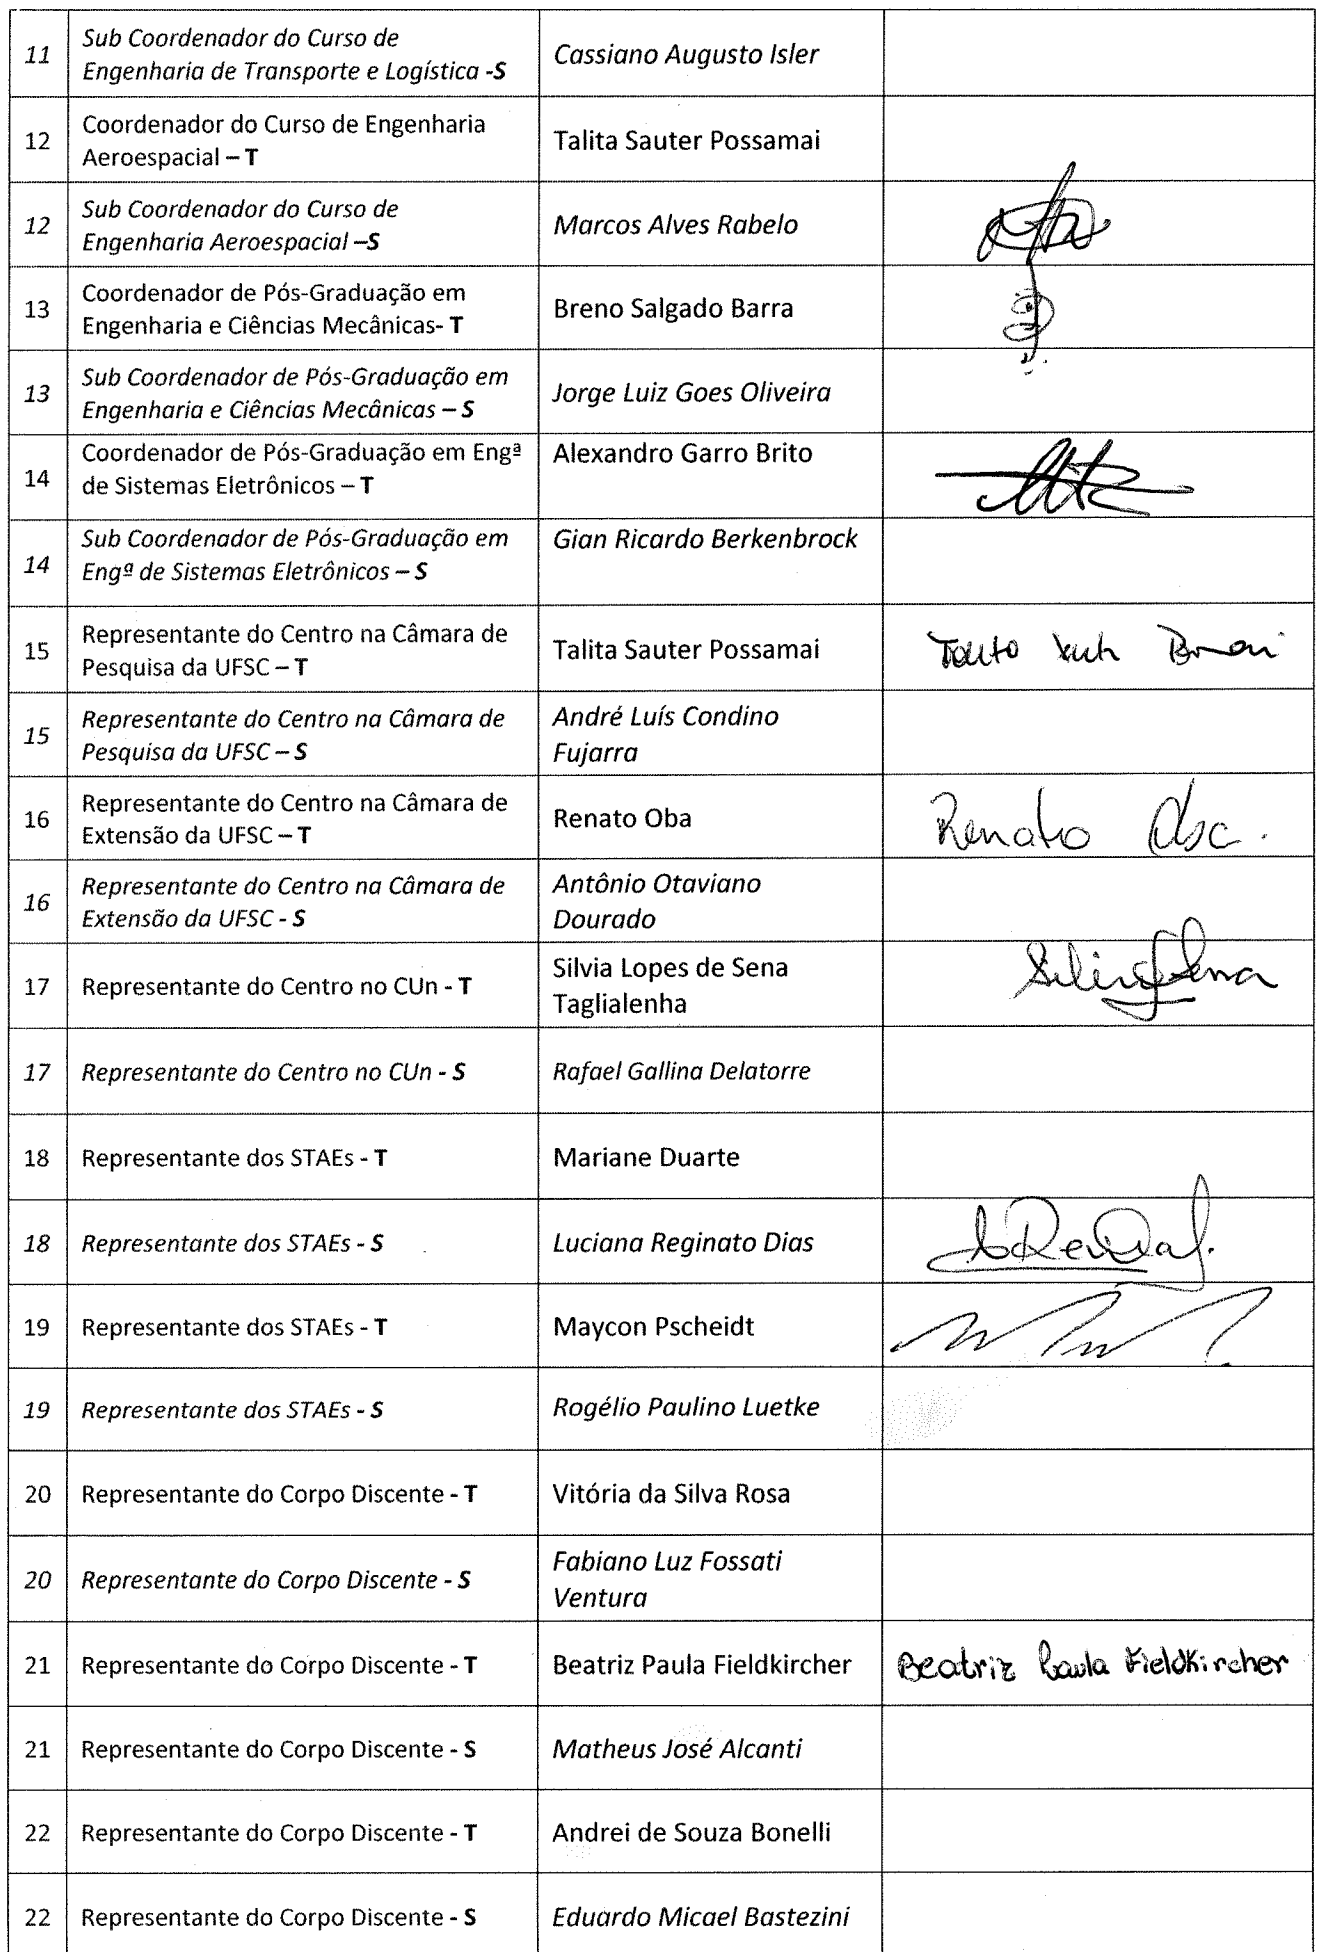 11
Sub Coordenador do Curso de
Engenharia de Transporte e Logística -S
Cassiano Augusto Isler
12
Coordenador do Curso de Engenharia
Aeroespacial – T
Talita Sauter Possamai
12
Sub Coordenador do Curso de
Engenharia Aeroespacial –S
Marcos Alves Rabelo
13
Coordenador de Pós-Graduação em
Engenharia e Ciências Mecânicas- T
Breno Salgado Barra
13
Sub Coordenador de Pós-Graduação em
Engenharia e Ciências Mecânicas – S
Jorge Luiz Goes Oliveira
14
Coordenador de Pós-Graduação em Engª
de Sistemas Eletrônicos – T
Alexandro Garro Brito
14
Sub Coordenador de Pós-Graduação em
Engª de Sistemas Eletrônicos – S
Gian Ricardo Berkenbrock
15
Representante do Centro na Câmara de
Pesquisa da UFSC – T
Talita Sauter Possamai
15
Representante do Centro na Câmara de
Pesquisa da UFSC – S
André Luís Condino
Fujarra
16
Representante do Centro na Câmara de
Extensão da UFSC – T
Renato Oba
Renato
16
Representante do Centro na Câmara de
Extensão da UFSC - S
Antônio Otaviano
Dourado
17
Representante do Centro no CUn - T
Silvia Lopes de Sena
Taglialenha
17
Representante do Centro no CUn - S
Rafael Gallina Delatorre
18
Representante dos STAEs - T
Mariane Duarte
18
Representante dos STAEs - S
Luciana Reginato Dias
19
Representante dos STAEs - T
Maycon Pscheidt
19
Representante dos STAEs - S
Rogélio Paulino Luetke
20
Representante do Corpo Discente - T
Vitória da Silva Rosa
20
Representante do Corpo Discente - S
Fabiano Luz Fossati
Ventura
21
Representante do Corpo Discente - T
Beatriz Paula Fieldkircher
Beatriz Paula Fieldkircher
21
Representante do Corpo Discente - S
Matheus José Alcanti
22
Representante do Corpo Discente - T
Andrei de Souza Bonelli
22
Representante do Corpo Discente - S
Eduardo Micael Bastezini